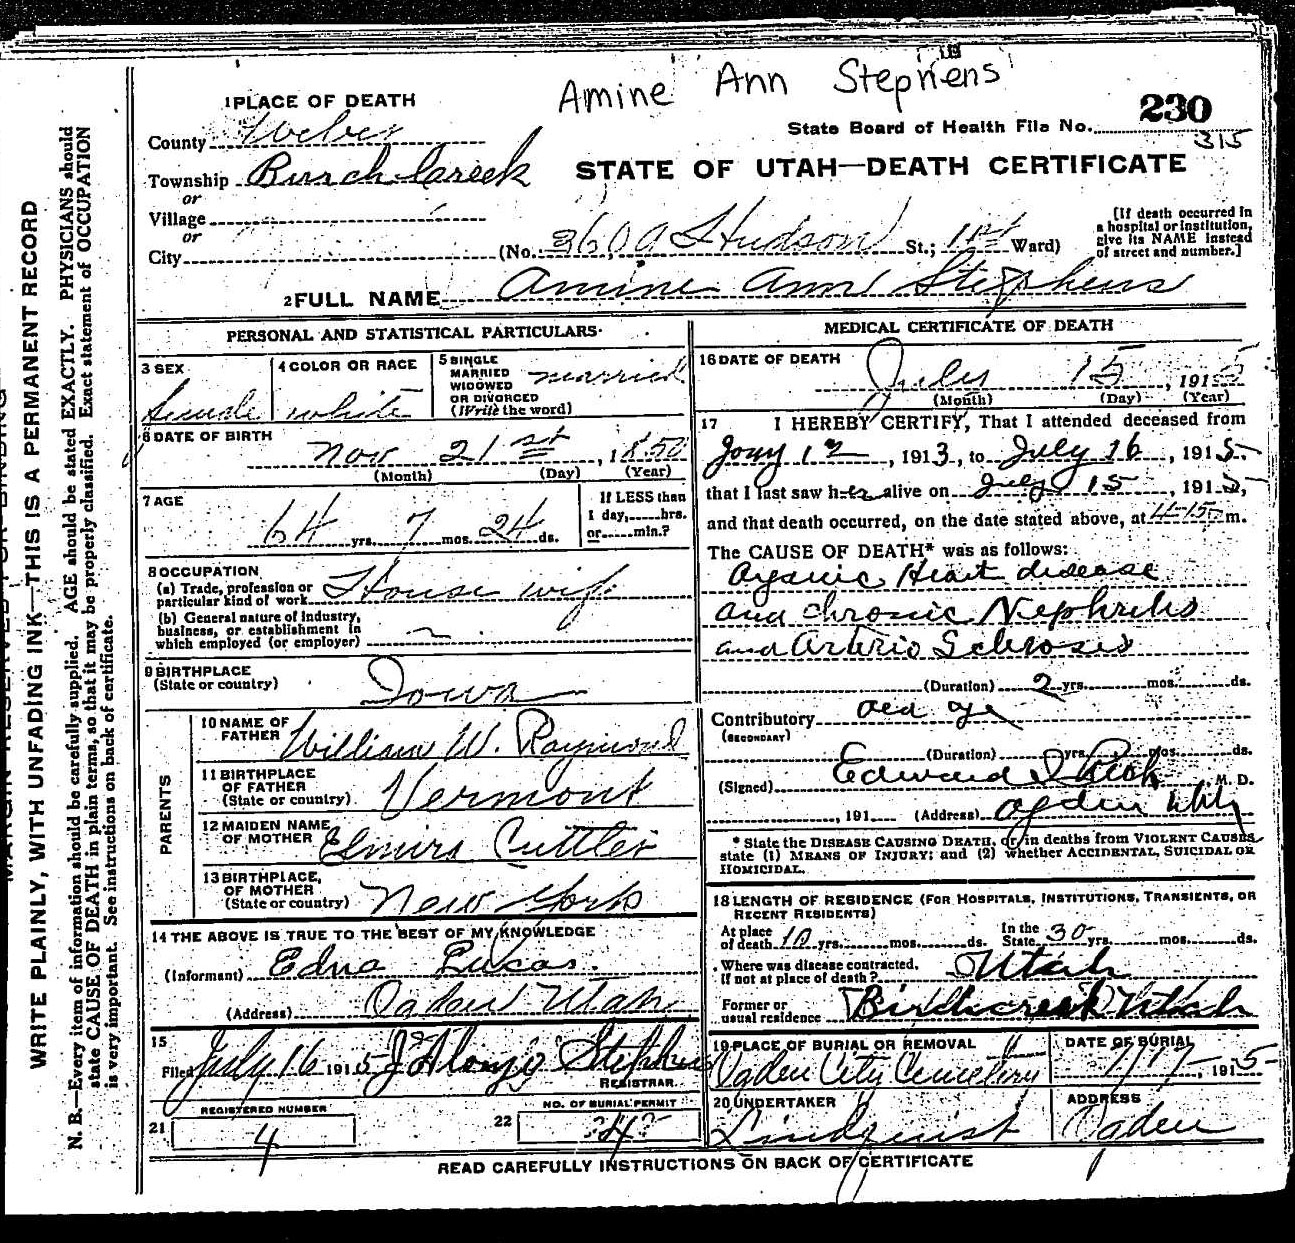 Amine Ann Stephens
1 PLACE OF DEATH
230
State Board of Health File No.
315
County Weber
Township Burch Creek
STATE OF UTAH—DEATH CERTIFICATE
or
Village
or
City
(No. 3609 Hudson St.; 1st Ward)
[If death occurred in
a hospital or institution,
give its NAME instead
of street and number.]
2 FULL NAME Amine Ann Stephens
PERSONAL AND STATISTICAL PARTICULARS
3 SEX
female
4 COLOR OR RACE
white
5 SINGLE
MARRIED
WIDOWED
OR DIVORCED
(Write the word)
married
6 DATE OF BIRTH
Nov 21st, 1850
(Month) (Day) (Year)
7 AGE
64 yrs. 7 mos. 24 ds.
If LESS than
1 day,....hrs.
or....min.?
8 OCCUPATION
(a) Trade, profession or
particular kind of work House wife
(b) General nature of industry,
business, or establishment in
which employed (or employer)
9 BIRTHPLACE
(State or country) Iowa
PARENTS
10 NAME OF
FATHER William W. Raymond
11 BIRTHPLACE
OF FATHER
(State or country) Vermont
12 MAIDEN NAME
OF MOTHER Elmira Cuttler
13 BIRTHPLACE,
OF MOTHER
(State or country) New York
14 THE ABOVE IS TRUE TO THE BEST OF MY KNOWLEDGE
(Informant) Edna Lucas.
(Address) Ogden Utah
15
Filed July 16 1915 J Alonzo Stephens
REGISTRAR
REGISTERED NUMBER
21 4
NO. OF BURIAL PERMIT
22 4
MEDICAL CERTIFICATE OF DEATH
16 DATE OF DEATH
July 15, 1915
(Month) (Day) (Year)
17 I HEREBY CERTIFY, That I attended deceased from
1913, to July 16, 1915
that I last saw her alive on July 15, 1915,
and that death occurred, on the date stated above, at 4-15 m.
The CAUSE OF DEATH* was as follows:
Organic Heart disease
and chronic Nephritis
and Arterio Sclrosis
(Duration) 2 yrs. mos. ds.
Contributory old age
(SECONDARY)
(Duration) yrs. mos. ds.
(Signed) Edward I Rich M. D.
, 191 (Address) Ogden Utah
* State the DISEASE CAUSING DEATH, or in deaths from VIOLENT CAUSES
state (1) MEANS OF INJURY; and (2) whether ACCIDENTAL, SUICIDAL OR
HOMICIDAL.
18 LENGTH OF RESIDENCE (FOR HOSPITALS, INSTITUTIONS, TRANSIENTS, OR
RECENT RESIDENTS)
At place
of death 10 yrs. mos. ds.
In the
State 30 yrs. mos. ds.
Where was disease contracted,
if not at place of death? Utah
Former or
usual residence Birchcreek Utah
19 PLACE OF BURIAL OR REMOVAL
Ogden City Cemetery
DATE OF BURIAL
7/17, 1915
20 UNDERTAKER
Lindquist
ADDRESS
Ogden
READ CAREFULLY INSTRUCTIONS ON BACK OF CERTIFICATE
WRITE PLAINLY, WITH UNFADING INK—THIS IS A PERMANENT RECORD
N. B.—Every item of information should be carefully supplied. AGE should be stated EXACTLY. PHYSICIANS should
state CAUSE OF DEATH in plain terms, so that it may be properly classified. Exact statement of OCCUPATION
is very important. See instructions on back of certificate.